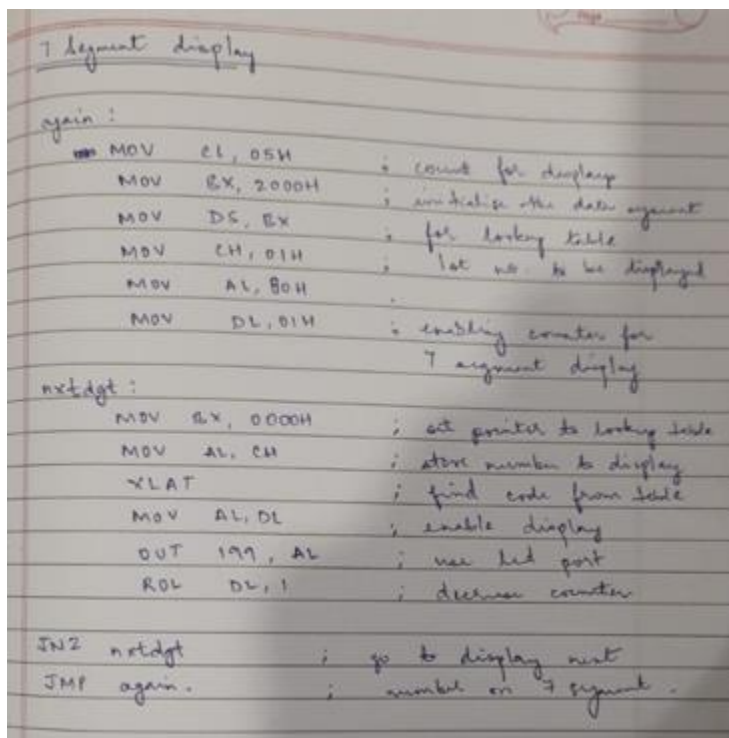 7 Segment display
again :
MOV CL, 05H ; count for displays
MOV BX, 2000H ; initialise the data segment
MOV DS, BX ; for looking table
MOV CH, 01H ; 1st no. to be displayed
MOV AL, 80H ;
MOV DL, 01H ; enabling counter for
7 segment display
nxtdgt :
MOV BX, 0000H ; set pointer to looking table
MOV AL, CH ; store number to display
XLAT ; find code from table
MOV AL, DL ; enable display
OUT 199, AL ; use led port
ROL DL, 1 ; decrease counter
JNZ nxtdgt ; go to display next
JMP again. ; number on 7 segment.